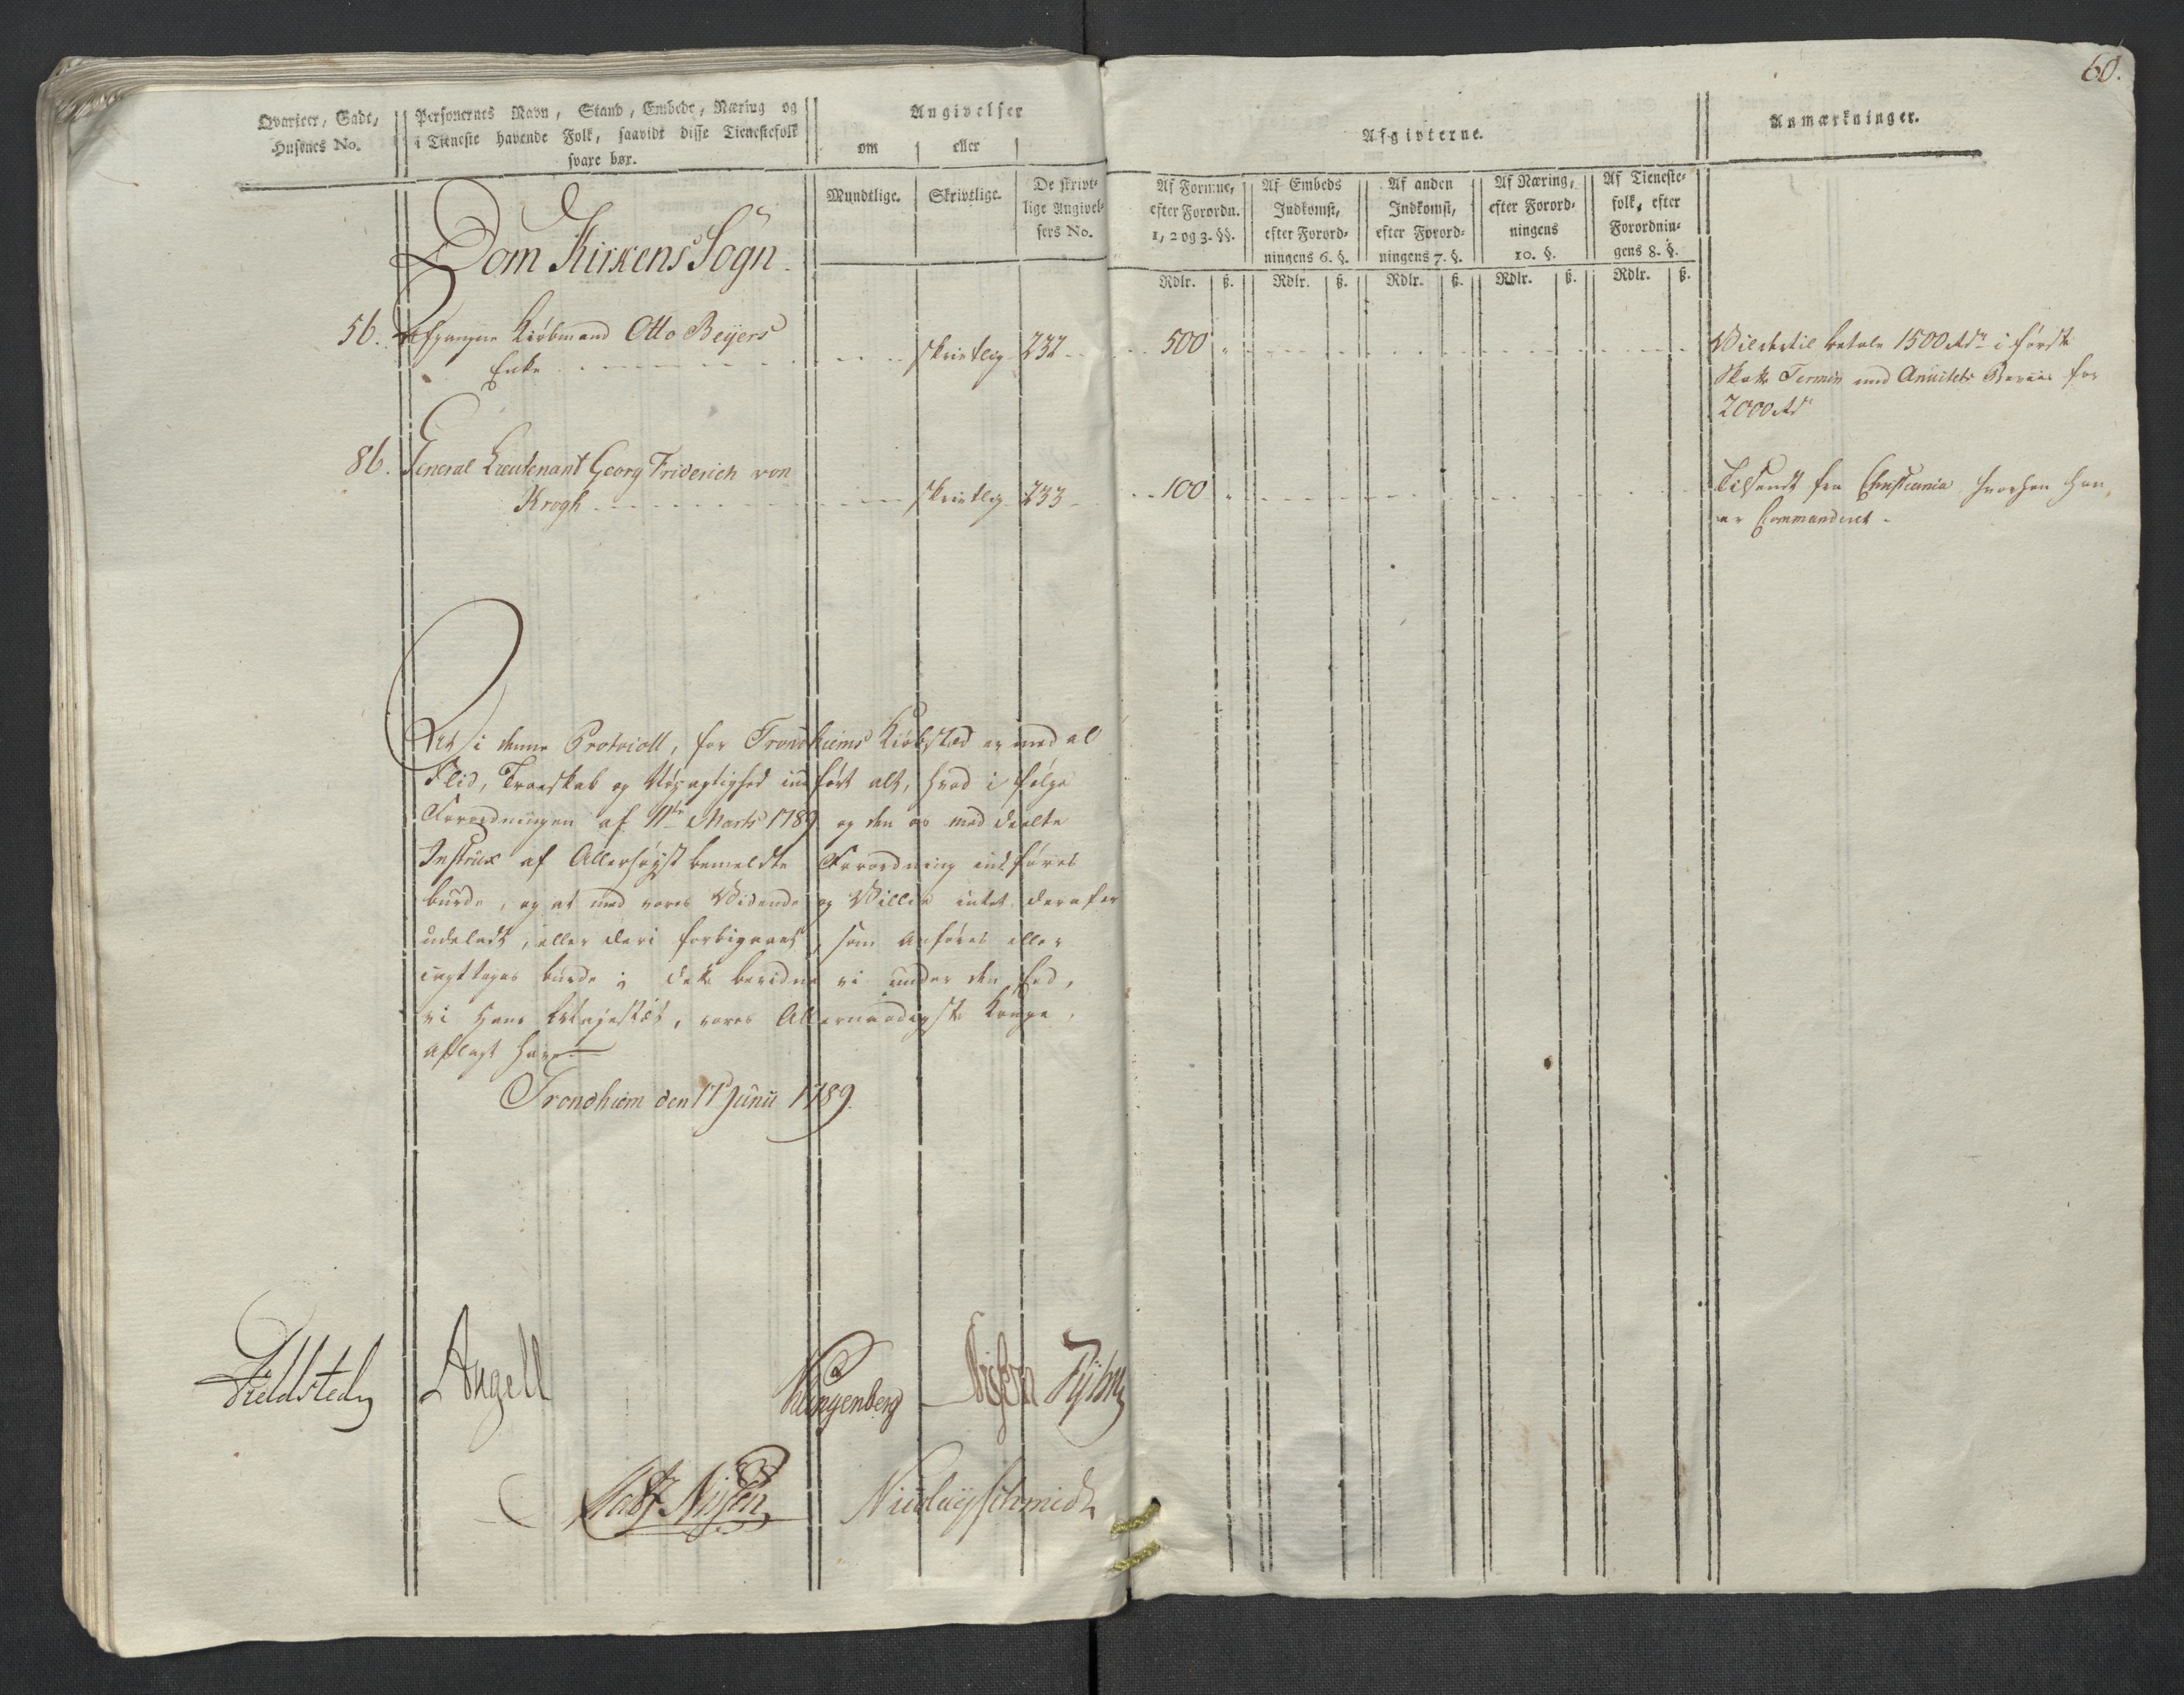 60.
Qvarteer, Gade,
Husenes No.
Personernes Navn, Stand, Embede, Næring og
i Tieneste havende Folk, saavidt disse Tienestefolk
svare bør.
Angivelser
om eller
Mundtlige. Skrivtlige. De skrivt-
lige Angivel-
sers No.
Afgivterne.
Anmærkninger.
Af Formue,
efter Forordn.
1, 2 og 3. §§.
Af Embeds
Indkomst,
efter Forord-
ningens 6. §.
Af anden
Indkomst,
efter Forord-
ningens 7. §.
Af Næring,
efter Forord-
ningens
10. §.
Af Tieneste-
folk, efter
Forordnin-
gens 8. §.
Rdlr. ß. Rdlr. ß. Rdlr. ß. Rdlr. ß. Rdlr. ß.
Dom Kirkens Sogn.
56. Afgangne Kiöbmand Otto Beÿers
Enke skrivtlig 232 500
betale 1500 Rdr i först
Skatte Termin med Anuitets Beviis for
2000 Rdr
86. General Lieutenant Georg Friderich von
Krogh skrivtlig 233 100
Tilsendt fra Christiania hvorhen han
er Commanderet.
At i denne Protocoll, for Trondhiems Kiöbstæd er med al
Flid, Troeskab og Nöyagtighed indfört alt, hvad i fölge
Forordningen af 11te Marts 1789 og den os meddeelte
Instrux af Allerhöyst bemeldte Forordning indföres
burde, og at med vores Vidende og Villie intet deraf er
udeladt, eller deri forbigaaet, som anföres eller
iagttages burde; dette bevidne vi under den Eed,
vi Hans Majestæt, vores Allernaadigste Konge,
aflagt have.
Trondhiem den 17 Junii 1789.
Fieldsted Angell Klingenberg
Nissen Nicolay Schmidt